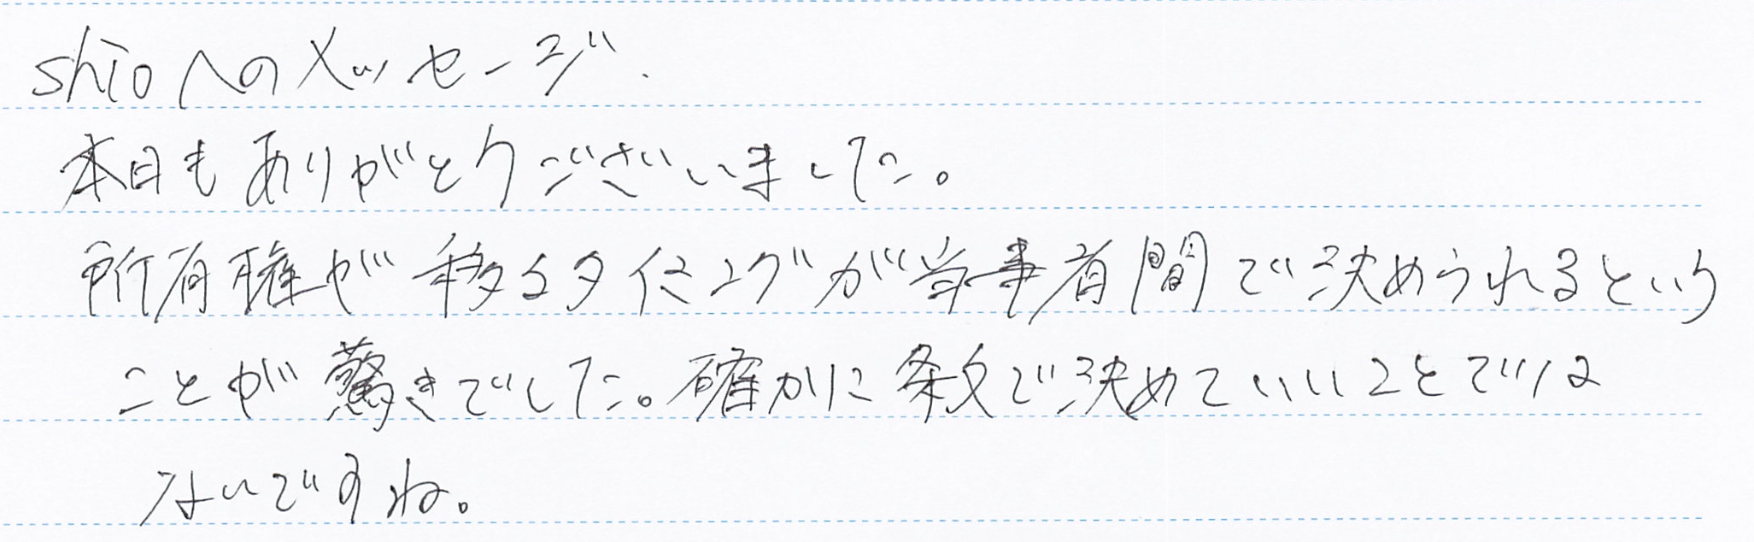 shioへのメッセージ.
本日もありがとうございました。
所有権が移るタイミングが当事者間で決められるという
ことが驚きでした。確かに条文で決めていいことでは
ないですね。